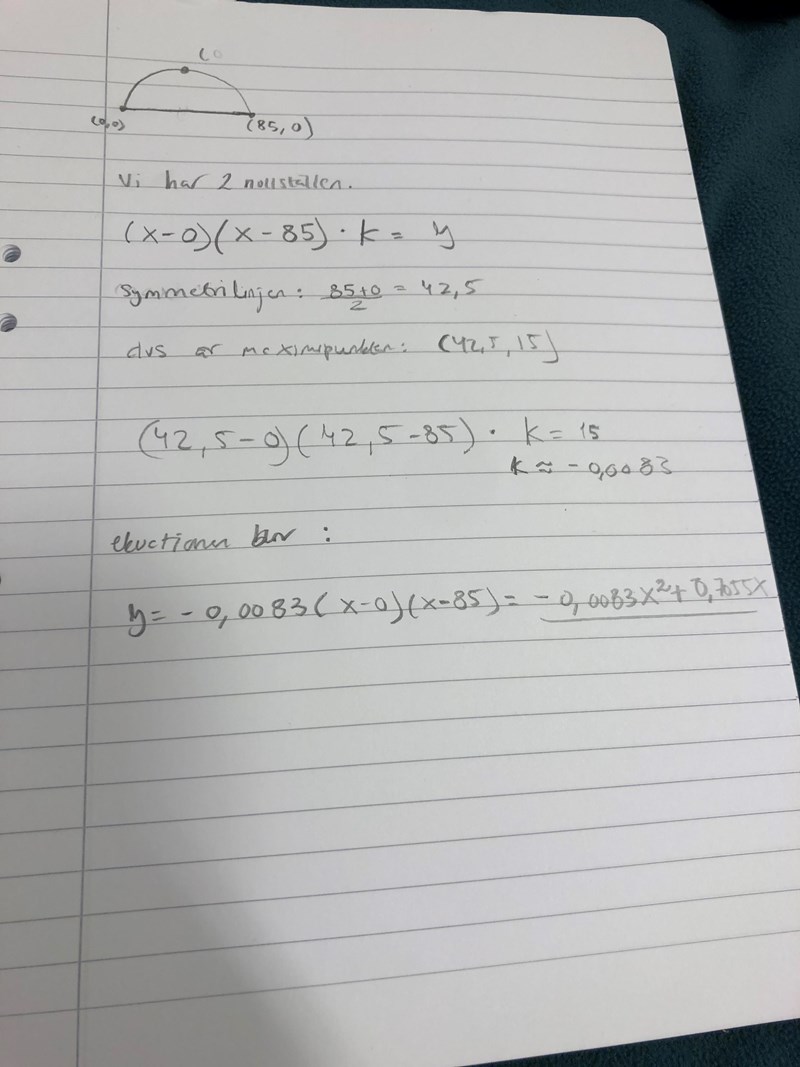 (0,0)
(85, 0)
Vi har 2 nollställen.
(x-0)(x-85) · k = y
Symmetrilinjen: 85+0/2 = 42,5
dvs är maximipunkten: (42,5, 15)
(42,5-0)(42,5-85) · k = 15
k ≈ -0,0083
ekvationen blir :
y = -0,0083(x-0)(x-85) = -0,0083x²+0,7055x